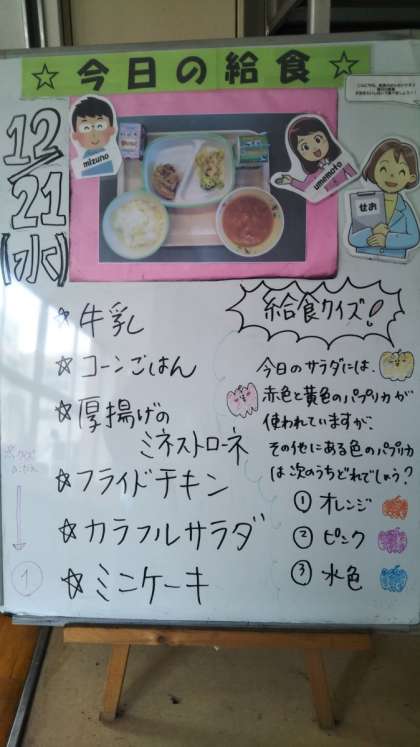 ☆今日の給食☆
12/21(水)
mizuno
umemoto
せお
☆牛乳
☆コーンごはん
☆厚揚げの
ミネストローネ
☆フライドチキン
☆カラフルサラダ
☆ミニケーキ
給食クイズ!
今日のサラダには、
赤色と黄色のパプリカが
使われていますが、
その他にある色のパプリカ
は次のうちどれでしょう?
① オレンジ
② ピンク
③ 水色
①